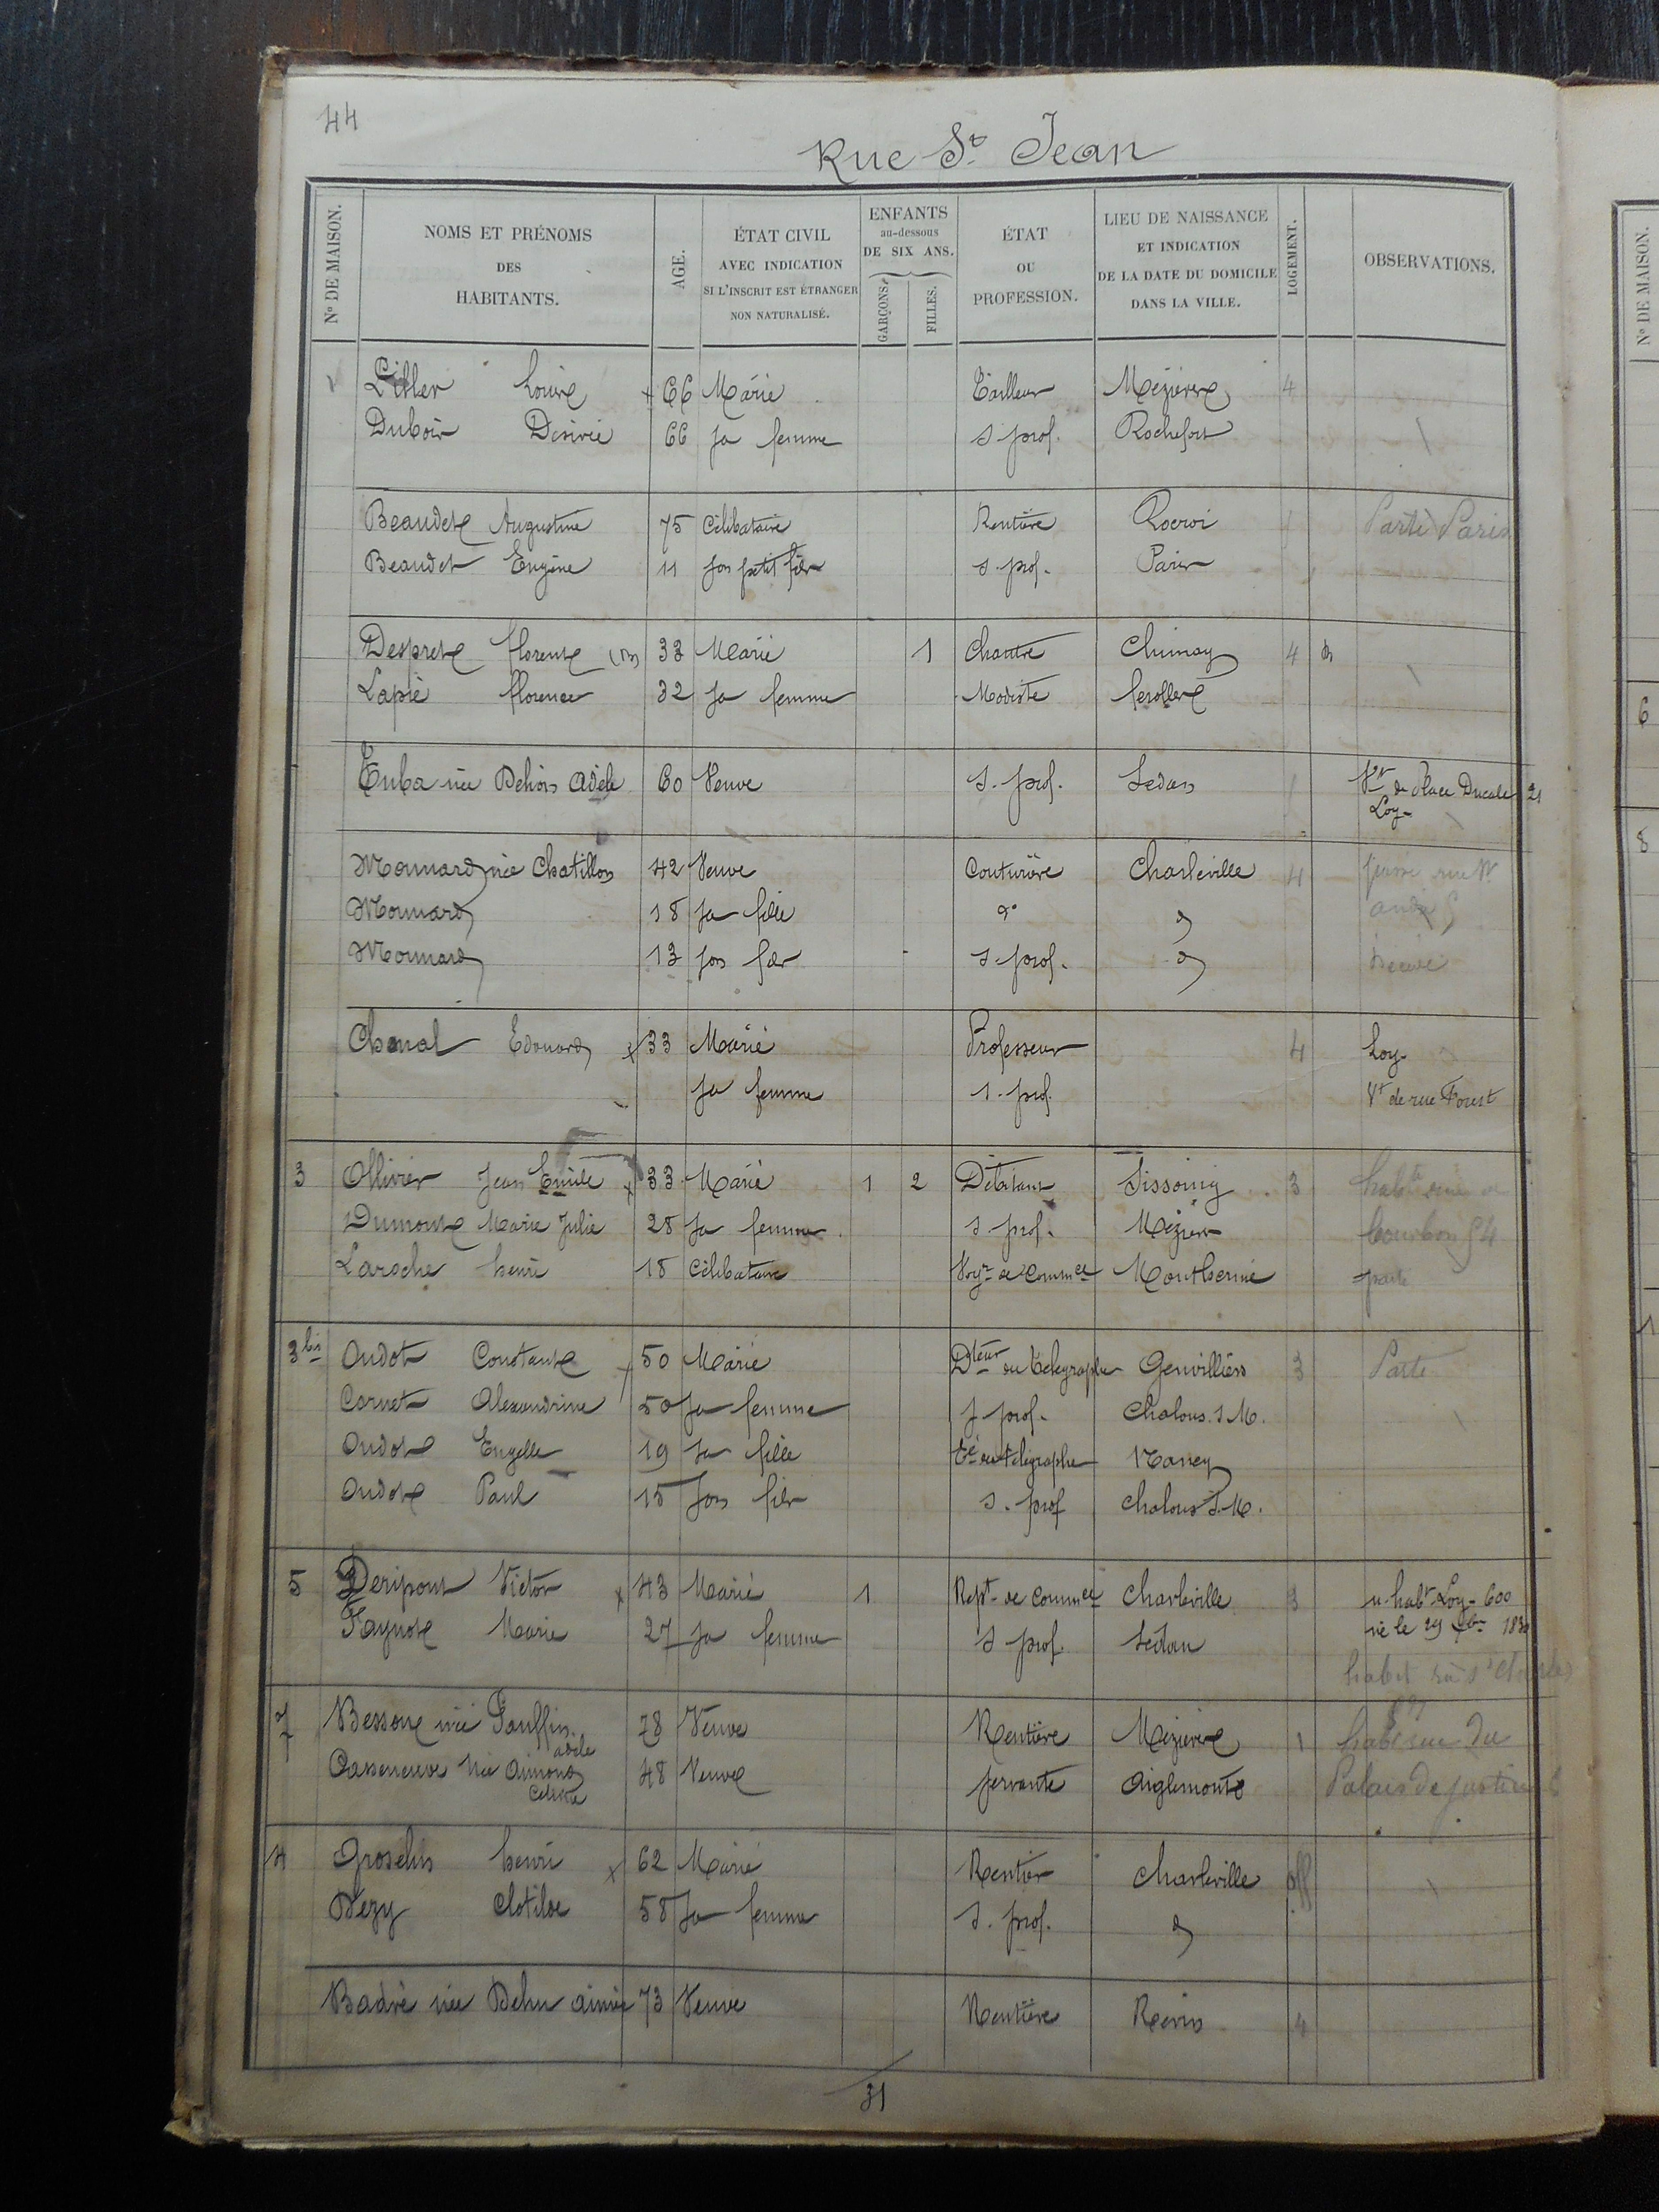 44
Rue St. Jean
Nº DE MAISON.
NOMS ET PRÉNOMS
DES
HABITANTS.
AGE.
ÉTAT CIVIL
AVEC INDICATION
SI L'INSCRIT EST ÉTRANGER
NON NATURALISÉ.
ENFANTS
au-dessous
DE SIX ANS.
GARÇONS.
FILLES.
ÉTAT
OU
PROFESSION.
LIEU DE NAISSANCE
ET INDICATION
DE LA DATE DU DOMICILE
DANS LA VILLE.
LOGEMENT.
OBSERVATIONS.
Nº DE MAISON.
Louis + 66 Marié Tailleur Mézières 4
Dubois Désirée 66 sa femme s. prof. Rochefort
Beaudet Augustine 75 Célibataire Rentière Rocroi Parti Paris
Beaudet Eugène 11 son petit fils s. prof. Paris
Desprets Florent 33 Marié 1 Chantre Chimay 4
Lapie Florence 32 sa femme Modiste
née Adèle 60 Veuve s. prof. Sedan Vt de Place Ducale 21
Loy-
Monnard née Chatillon 42 Veuve Couturière Charleville 4
Monnard 18 sa fille dº d
Monnard 13 son fils s. prof. d
Edouard x 33 Marié Professeur 4 Loy-
sa femme s. prof. Vt de rue Forest
3 Ollivier Jean Emile x 33 Marié 1 2 Débitant Sissonne 3
Dumont Marie Julie 28 sa femme s. prof. Mézières Bourbon
Laroche henri 18 Célibataire Voyr de Commce Monthermé parti
3 bis Oudot Constant 50 Marié Dteur du Télégraphe Genvilliers 3 Parti
Cornet Alexandrine 50 sa femme s. prof. Chalons S. M.
Oudot 19 sa fille Ee au télégraphe Nancy
Oudot Paul 15 son fils s. prof Chalons S. M.
5 Deripont Victor x 43 Marié 1 Rept de Commce Charleville 3 n. habt Loy- 600
Marie 27 sa femme s. prof. Sedan né le 29
habit rue St Charles
7 née Gouffin Adèle 78 Veuve Rentière Mézières 1 habt rue du
née Aimond Céleste 48 Veuve servante Aiglemont Palais de justice
4 Groselin henri x 62 Marié Rentier Charleville off
Dezy Clotilde 58 sa femme s. prof. d
Badré née Dehu aimée 73 Veuve Rentière Revin 4
31
6
8
1